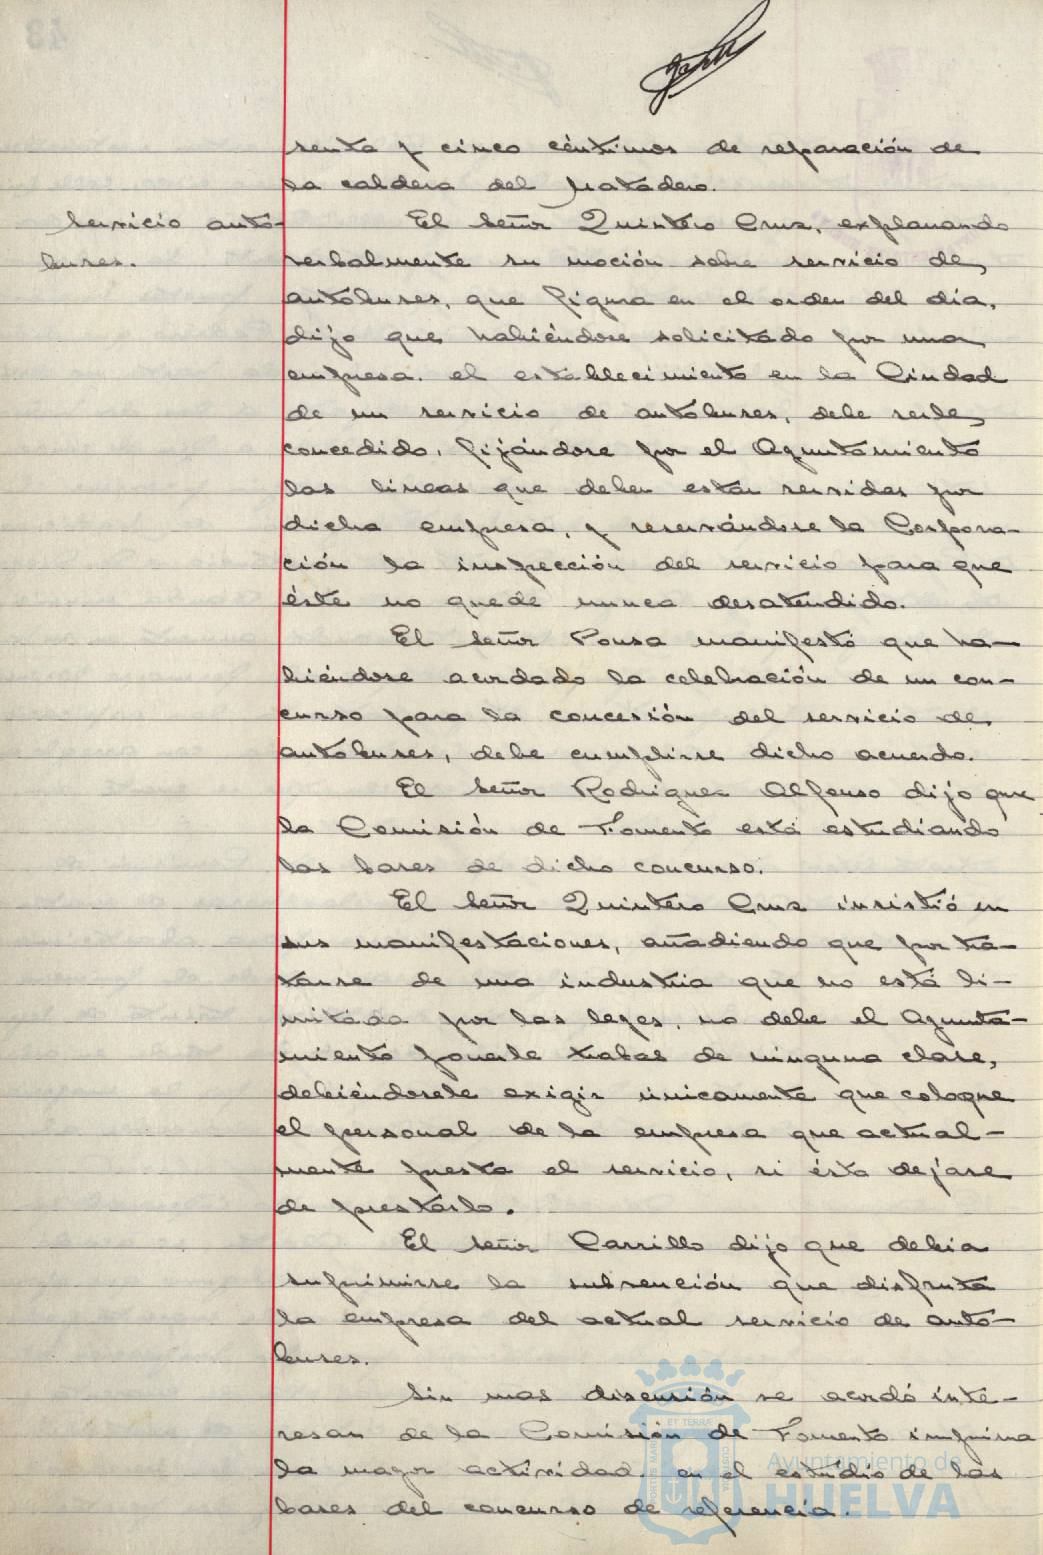 renta y cinco céntimos de reparación de
la caldera del Matadero.
Servicio auto-
buses.
El señor Quintero Cruz, explanando
verbalmente su moción sobre servicio de
autobuses, que figura en el orden del día,
dijo que habiéndose solicitado por una
empresa, el establecimiento en la Ciudad
de un servicio de autobuses, debe serle
concedido, fijándose por el Ayuntamiento
las líneas que deben estar servidas por
dicha empresa, y reservándose la Corpora-
ción la inspección del servicio para que
éste no quede nunca desatendido.
El señor Pousa manifestó que ha-
biéndose acordado la celebración de un con-
curso para la concesión del servicio de
autobuses, debe cumplirse dicho acuerdo.
El señor Rodriguez Alfonso dijo que
la Comisión de Fomento está estudiando
las bases de dicho concurso.
El señor Quintero Cruz insistió en
sus manifestaciones, añadiendo que por tra-
tarse de una industria que no está li-
mitada por las leyes, no debe el Ayunta-
miento ponerle trabas de ninguna clase,
debiéndosele exigir únicamente que coloque
el personal de la empresa que actual-
mente presta el servicio, si ésta dejase
de prestarlo.
El señor Carrillo dijo que debia
suprimirse la subvención que disfruta
la empresa del actual servicio de auto-
buses.
Sin mas discusión se acordó inte-
resar de la Comisión de Fomento imprima
la mayor actividad en el estudio de las
bases del concurso de referencia.
Ayuntamiento de
HUELVA